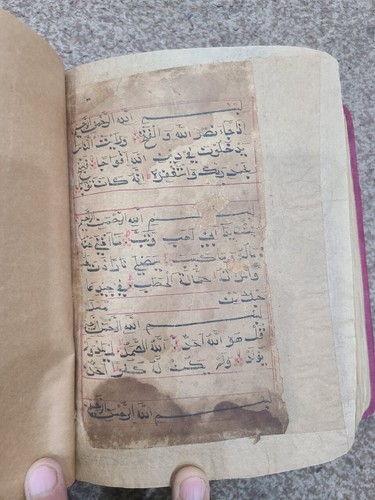 بسم الله الرحمن الرحيم
اذا جاء نصر الله والفتح ورايت الناس
يدخلون في دين الله افواجا فسبح
بحمد ربك واستغفره انه كان توابا
بسم الله الرحمن الرحيم
تبت يدا ابي لهب وتب ما اغنى عنه
ماله وما كسب سيصلى نارا ذات لهب
وامراته حمالة الحطب في جيدها
حبل من مسد
بسم الله الرحمن الرحيم
قل هو الله احد الله الصمد لم يلد ولم
يولد ولم يكن له كفوا احد
بسم الله الرحمن الرحيم